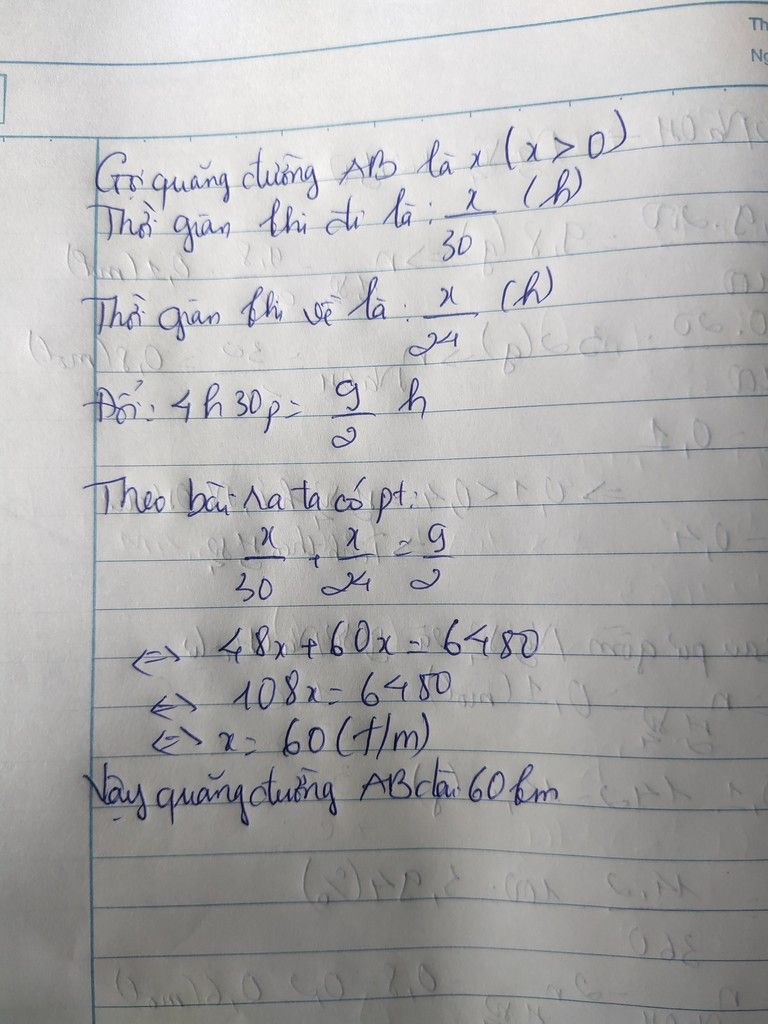 Th
Ng
Gọi quãng đường AB là x (x > 0)
Thời gian khi đi là: x/30 (h)
Thời gian khi về là: x/24 (h)
Đổi: 4h30p = 9/2 h
Theo bài ra ta có pt:
x/30 + x/24 = 9/2
<=> 48x + 60x = 6480
<=> 108x = 6480
<=> x = 60 (t/m)
Vậy quãng đường AB dài 60 km